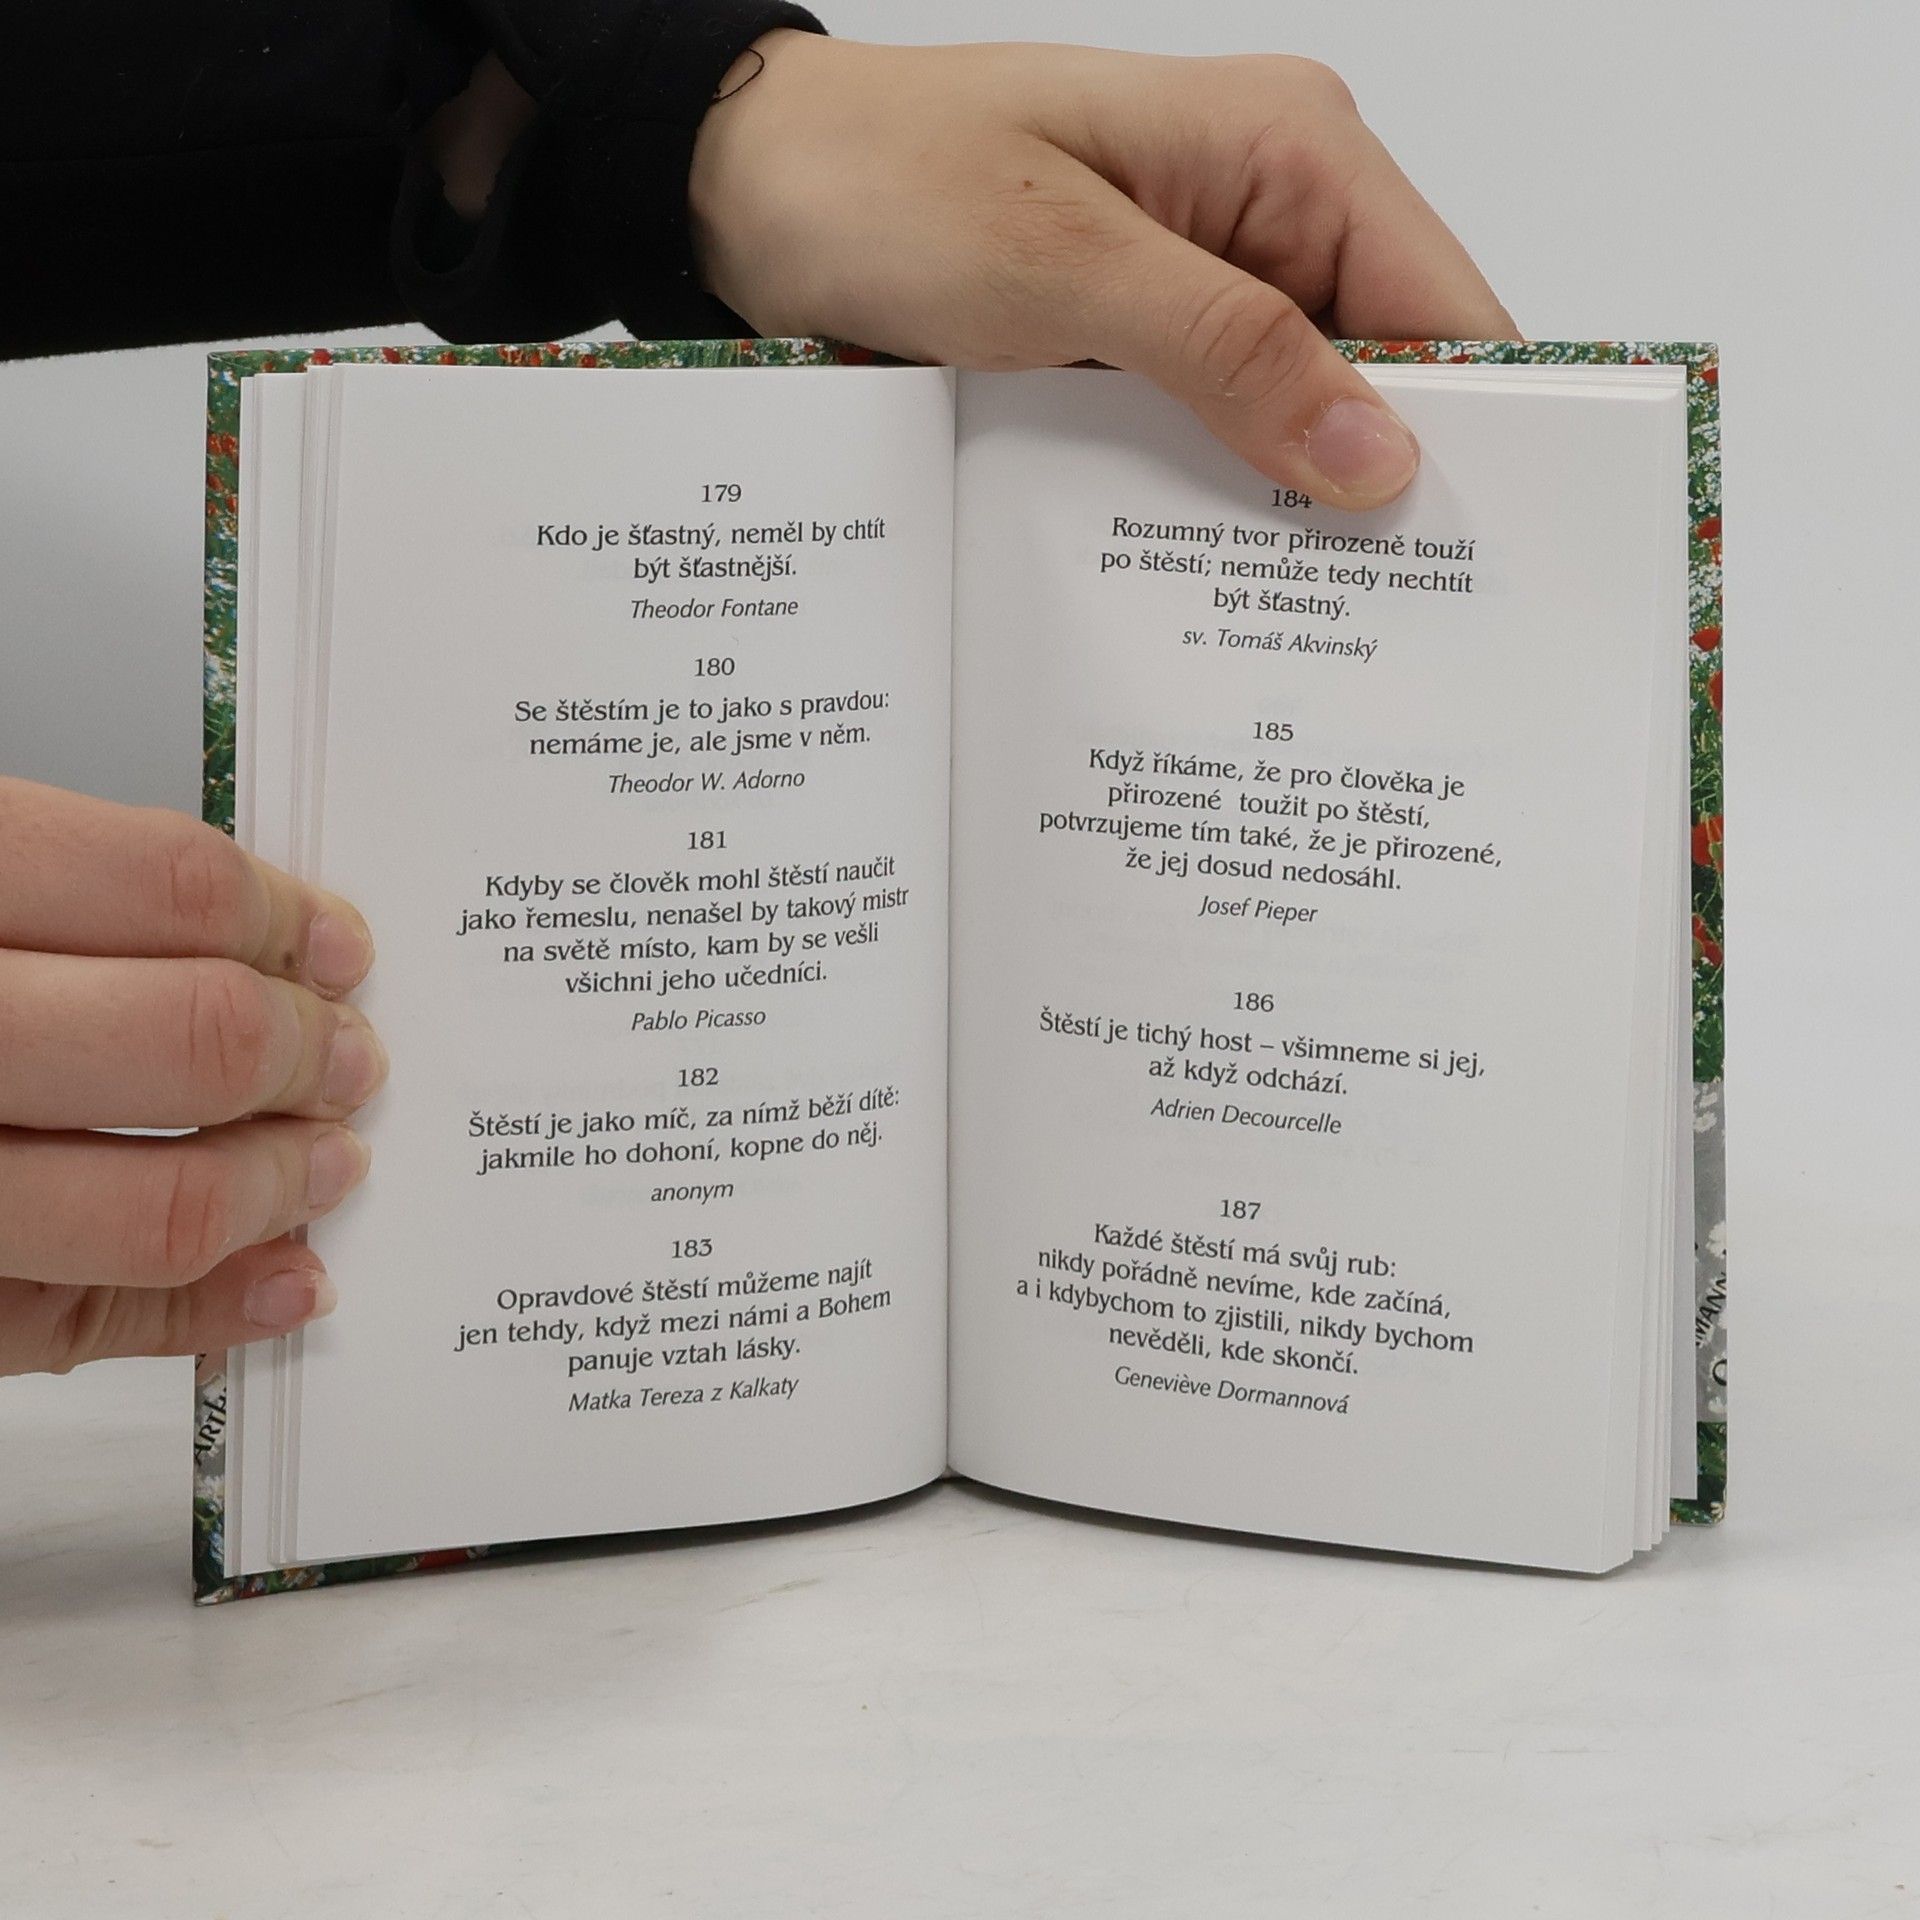 179
Kdo je šťastný, neměl by chtít
být šťastnější.
Theodor Fontane
180
Se štěstím je to jako s pravdou:
nemáme je, ale jsme v něm.
Theodor W. Adorno
181
Kdyby se člověk mohl štěstí naučit
jako řemeslu, nenašel by takový mistr
na světě místo, kam by se vešli
všichni jeho učedníci.
Pablo Picasso
182
Štěstí je jako míč, za nímž běží dítě:
jakmile ho dohoní, kopne do něj.
anonym
183
Opravdové štěstí můžeme najít
jen tehdy, když mezi námi a Bohem
panuje vztah lásky.
Matka Tereza z Kalkaty
184
Rozumný tvor přirozeně touží
po štěstí; nemůže tedy nechtít
být šťastný.
sv. Tomáš Akvinský
185
Když říkáme, že pro člověka je
přirozené toužit po štěstí,
potvrzujeme tím také, že je přirozené,
že jej dosud nedosáhl.
Josef Pieper
186
Štěstí je tichý host – všimneme si jej,
až když odchází.
Adrien Decourcelle
187
Každé štěstí má svůj rub:
nikdy pořádně nevíme, kde začíná,
a i kdybychom to zjistili, nikdy bychom
nevěděli, kde skončí.
Geneviève Dormannová